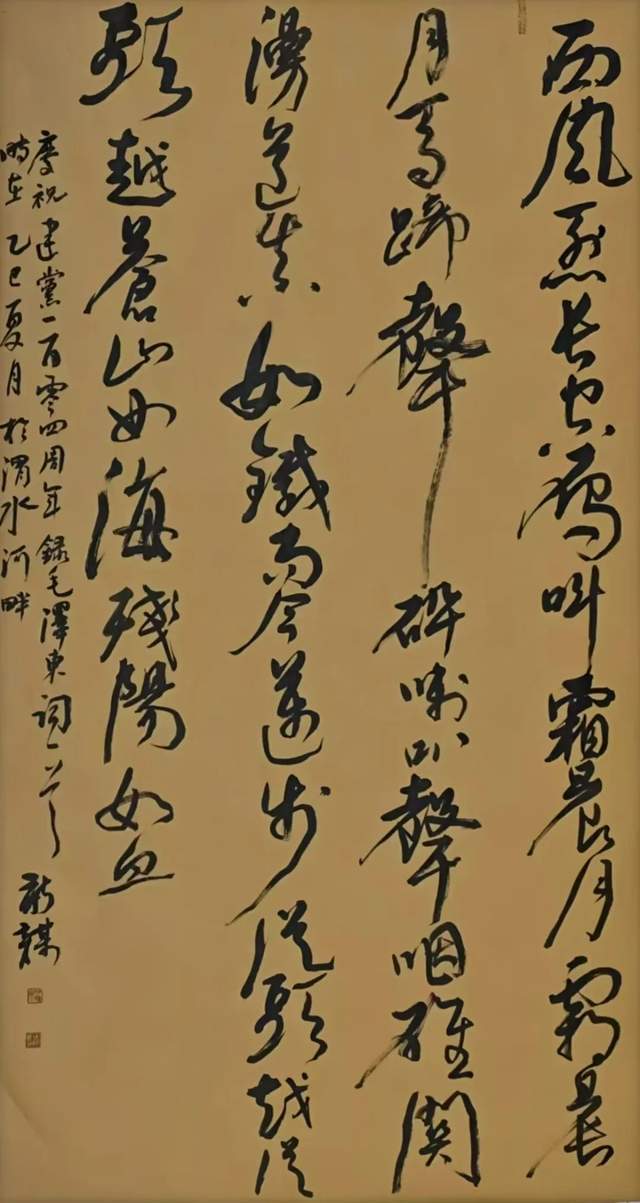 西風烈長空雁叫霜晨月霜晨
月馬蹄聲碎喇叭聲咽雄關
漫道真如鐵而今邁步從頭越從
頭越蒼山如海殘陽如血
慶祝建黨一百零四周年錄毛澤東詞一首
時在乙巳夏月於渭水河畔
新謀